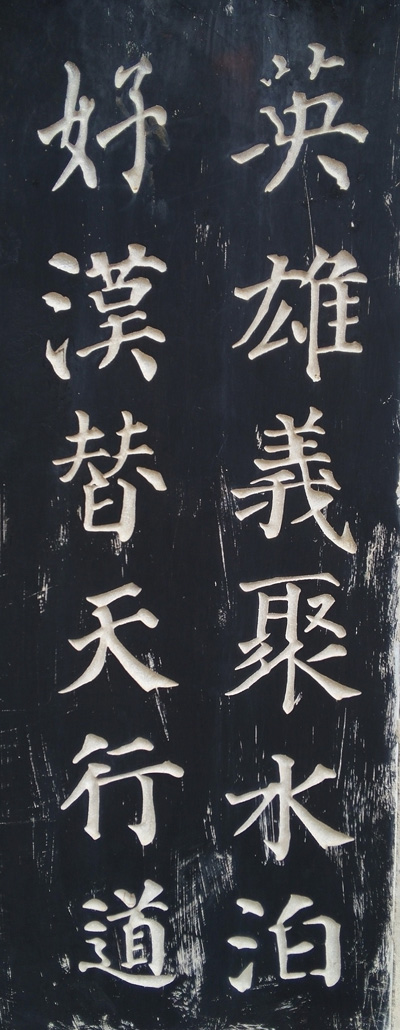 英雄義聚水泊
好漢替天行道